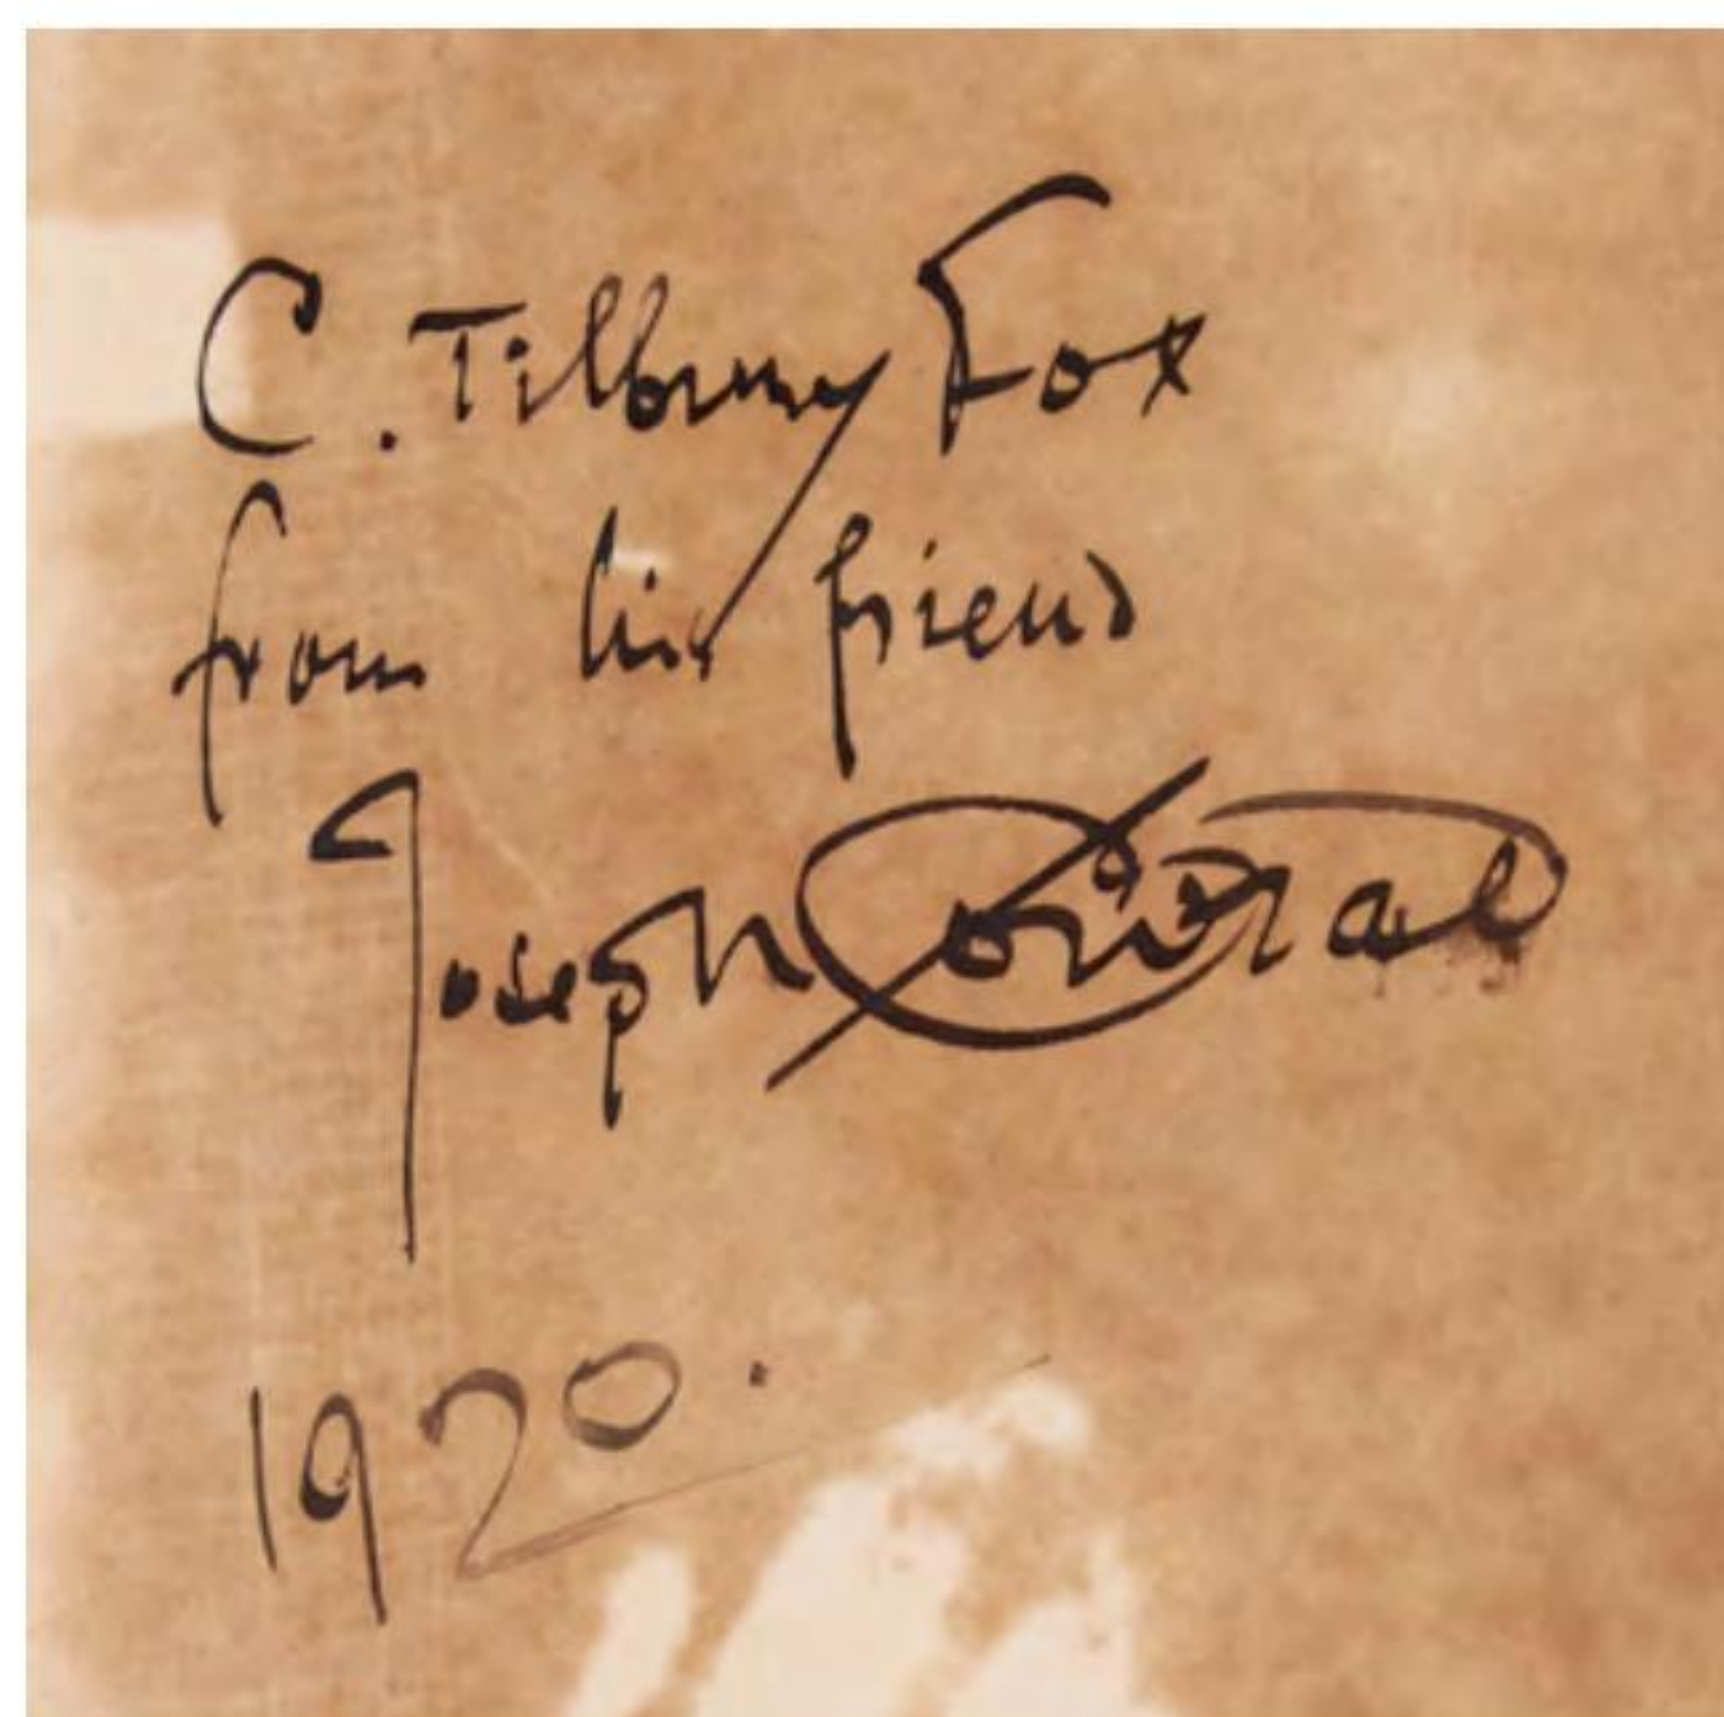 C. Tilbury Fox
from his friend
Joseph Conrad
1920.